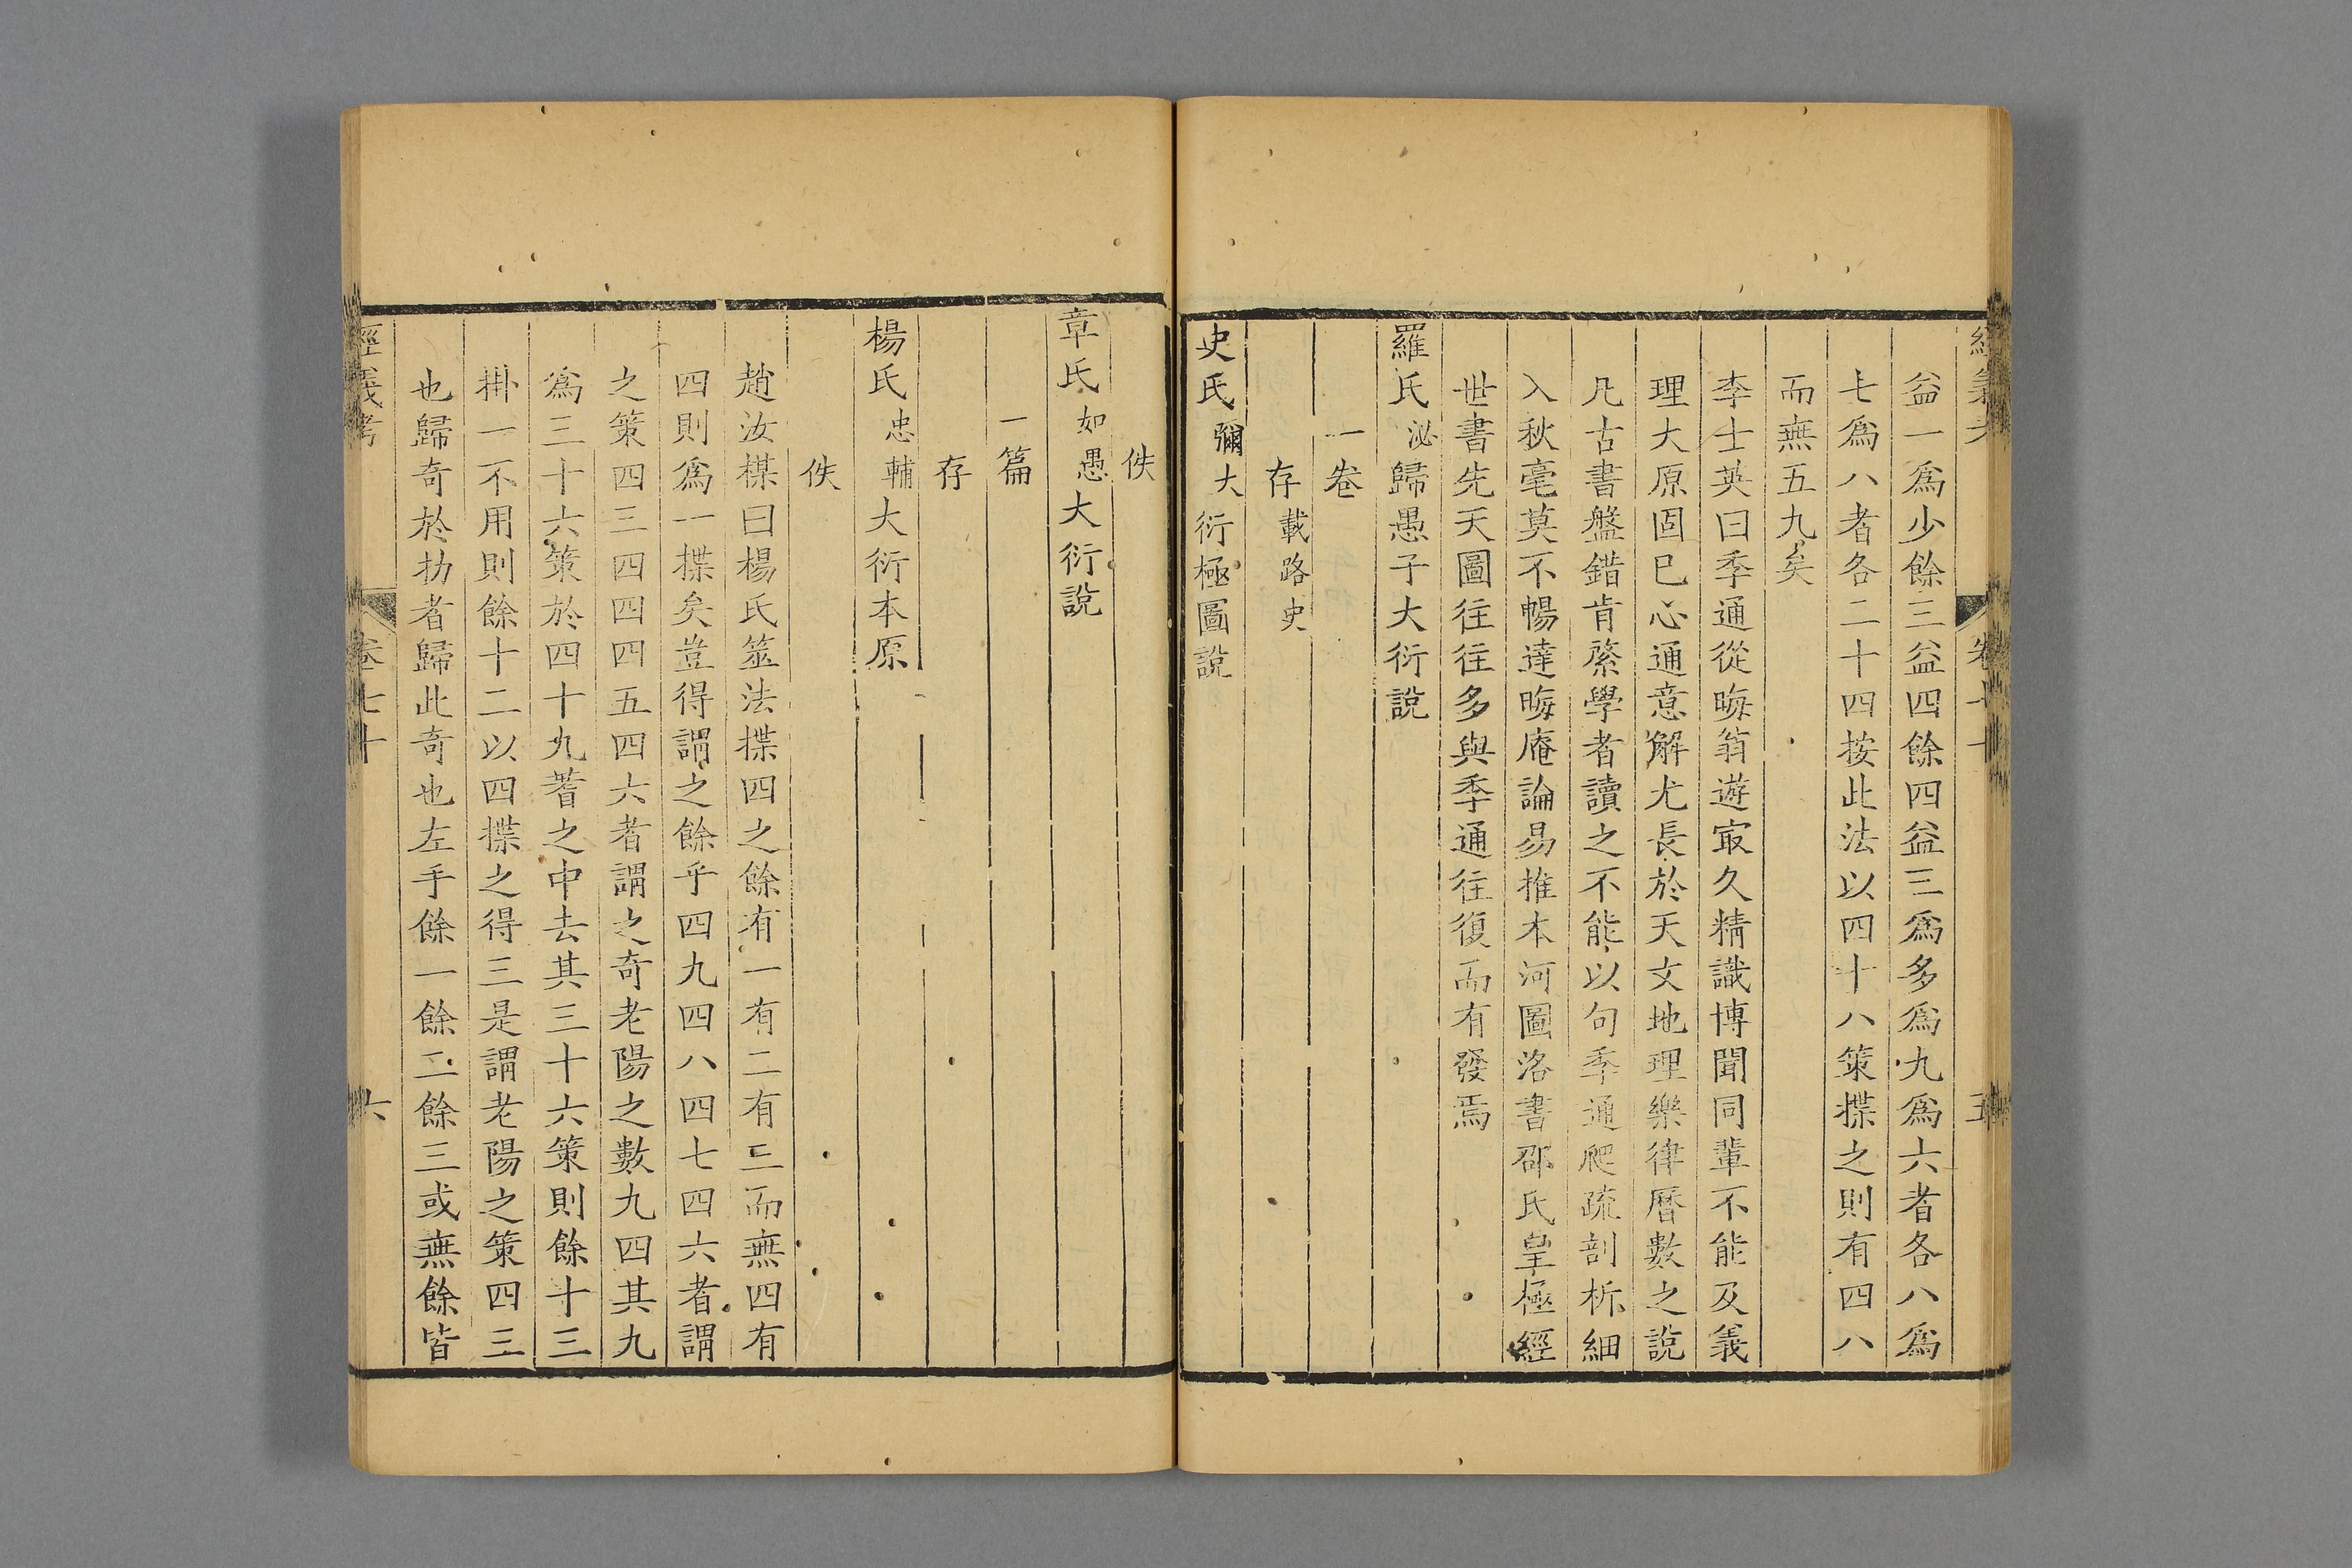 益一爲少餘三益四餘四益三爲多爲九爲六者各八爲
七爲八者各二十四按此法以四十八策揲之則有四八
而無五九矣
李士英曰季通從晦翁遊㝡久精識博聞同輩不能及義
理大原固已心通意解尤長於天文地理樂律曆數之說
凡古書盤錯肯綮學者讀之不能以句季通爬疏剖析細
入秋毫莫不暢達晦庵論易推本河圖洛書邵氏皇極經
世書先天圖往往多與季通往復而有發焉
羅氏泌歸愚子大衍說
一卷
存載路史
史氏彌大大衍極圖說
佚
章氏如愚大衍說
一篇
存
楊氏忠輔大衍本原
佚
趙汝楳曰楊氏筮法揲四之餘有一有二有三而無四有
四則爲一揲矣豈得謂之餘乎四九四八四七四六者謂
之策四三四四四五四六者謂之奇老陽之數九四其九
爲三十六策於四十九蓍之中去其三十六策則餘十三
掛一不用則餘十二以四揲之得三是謂老陽之策四三
也歸奇於扐者歸此奇也左手餘一餘二餘三或無餘皆
經義考
卷七十
六